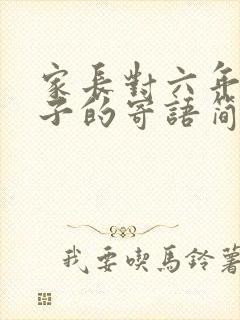 家長對六年
子的寄語簡
我要喫馬鈴薯